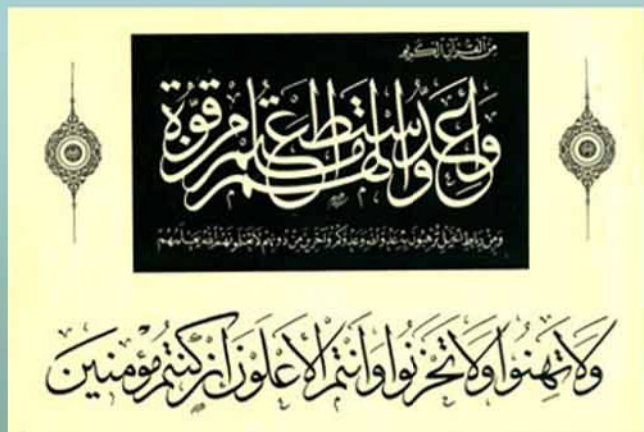 من القرآن الكريم
وَأَعِدُّوا لَهُم مَّا اسْتَطَعْتُم مِّن قُوَّةٍ
وَمِن رِّبَاطِ الْخَيْلِ تُرْهِبُونَ بِهِ عَدُوَّ اللَّهِ وَعَدُوَّكُمْ وَآخَرِينَ مِن دُونِهِمْ لَا تَعْلَمُونَهُمُ اللَّهُ يَعْلَمُهُمْ
وَلَا تَهِنُوا وَلَا تَحْزَنُوا وَأَنتُمُ الْأَعْلَوْنَ إِن كُنتُم مُّؤْمِنِينَ